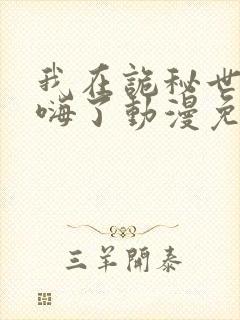 我在詭秘世
嗨了動漫免
三羊開泰